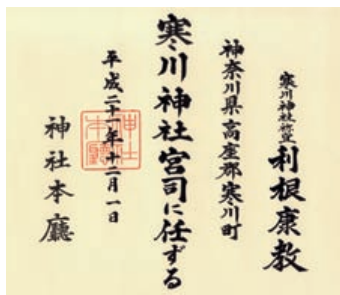 寒川神社祢宜 利根康教
神奈川県高座郡寒川町
寒川神社宮司に任ずる
平成二十一年十二月一日
神社本廳
神社本廳